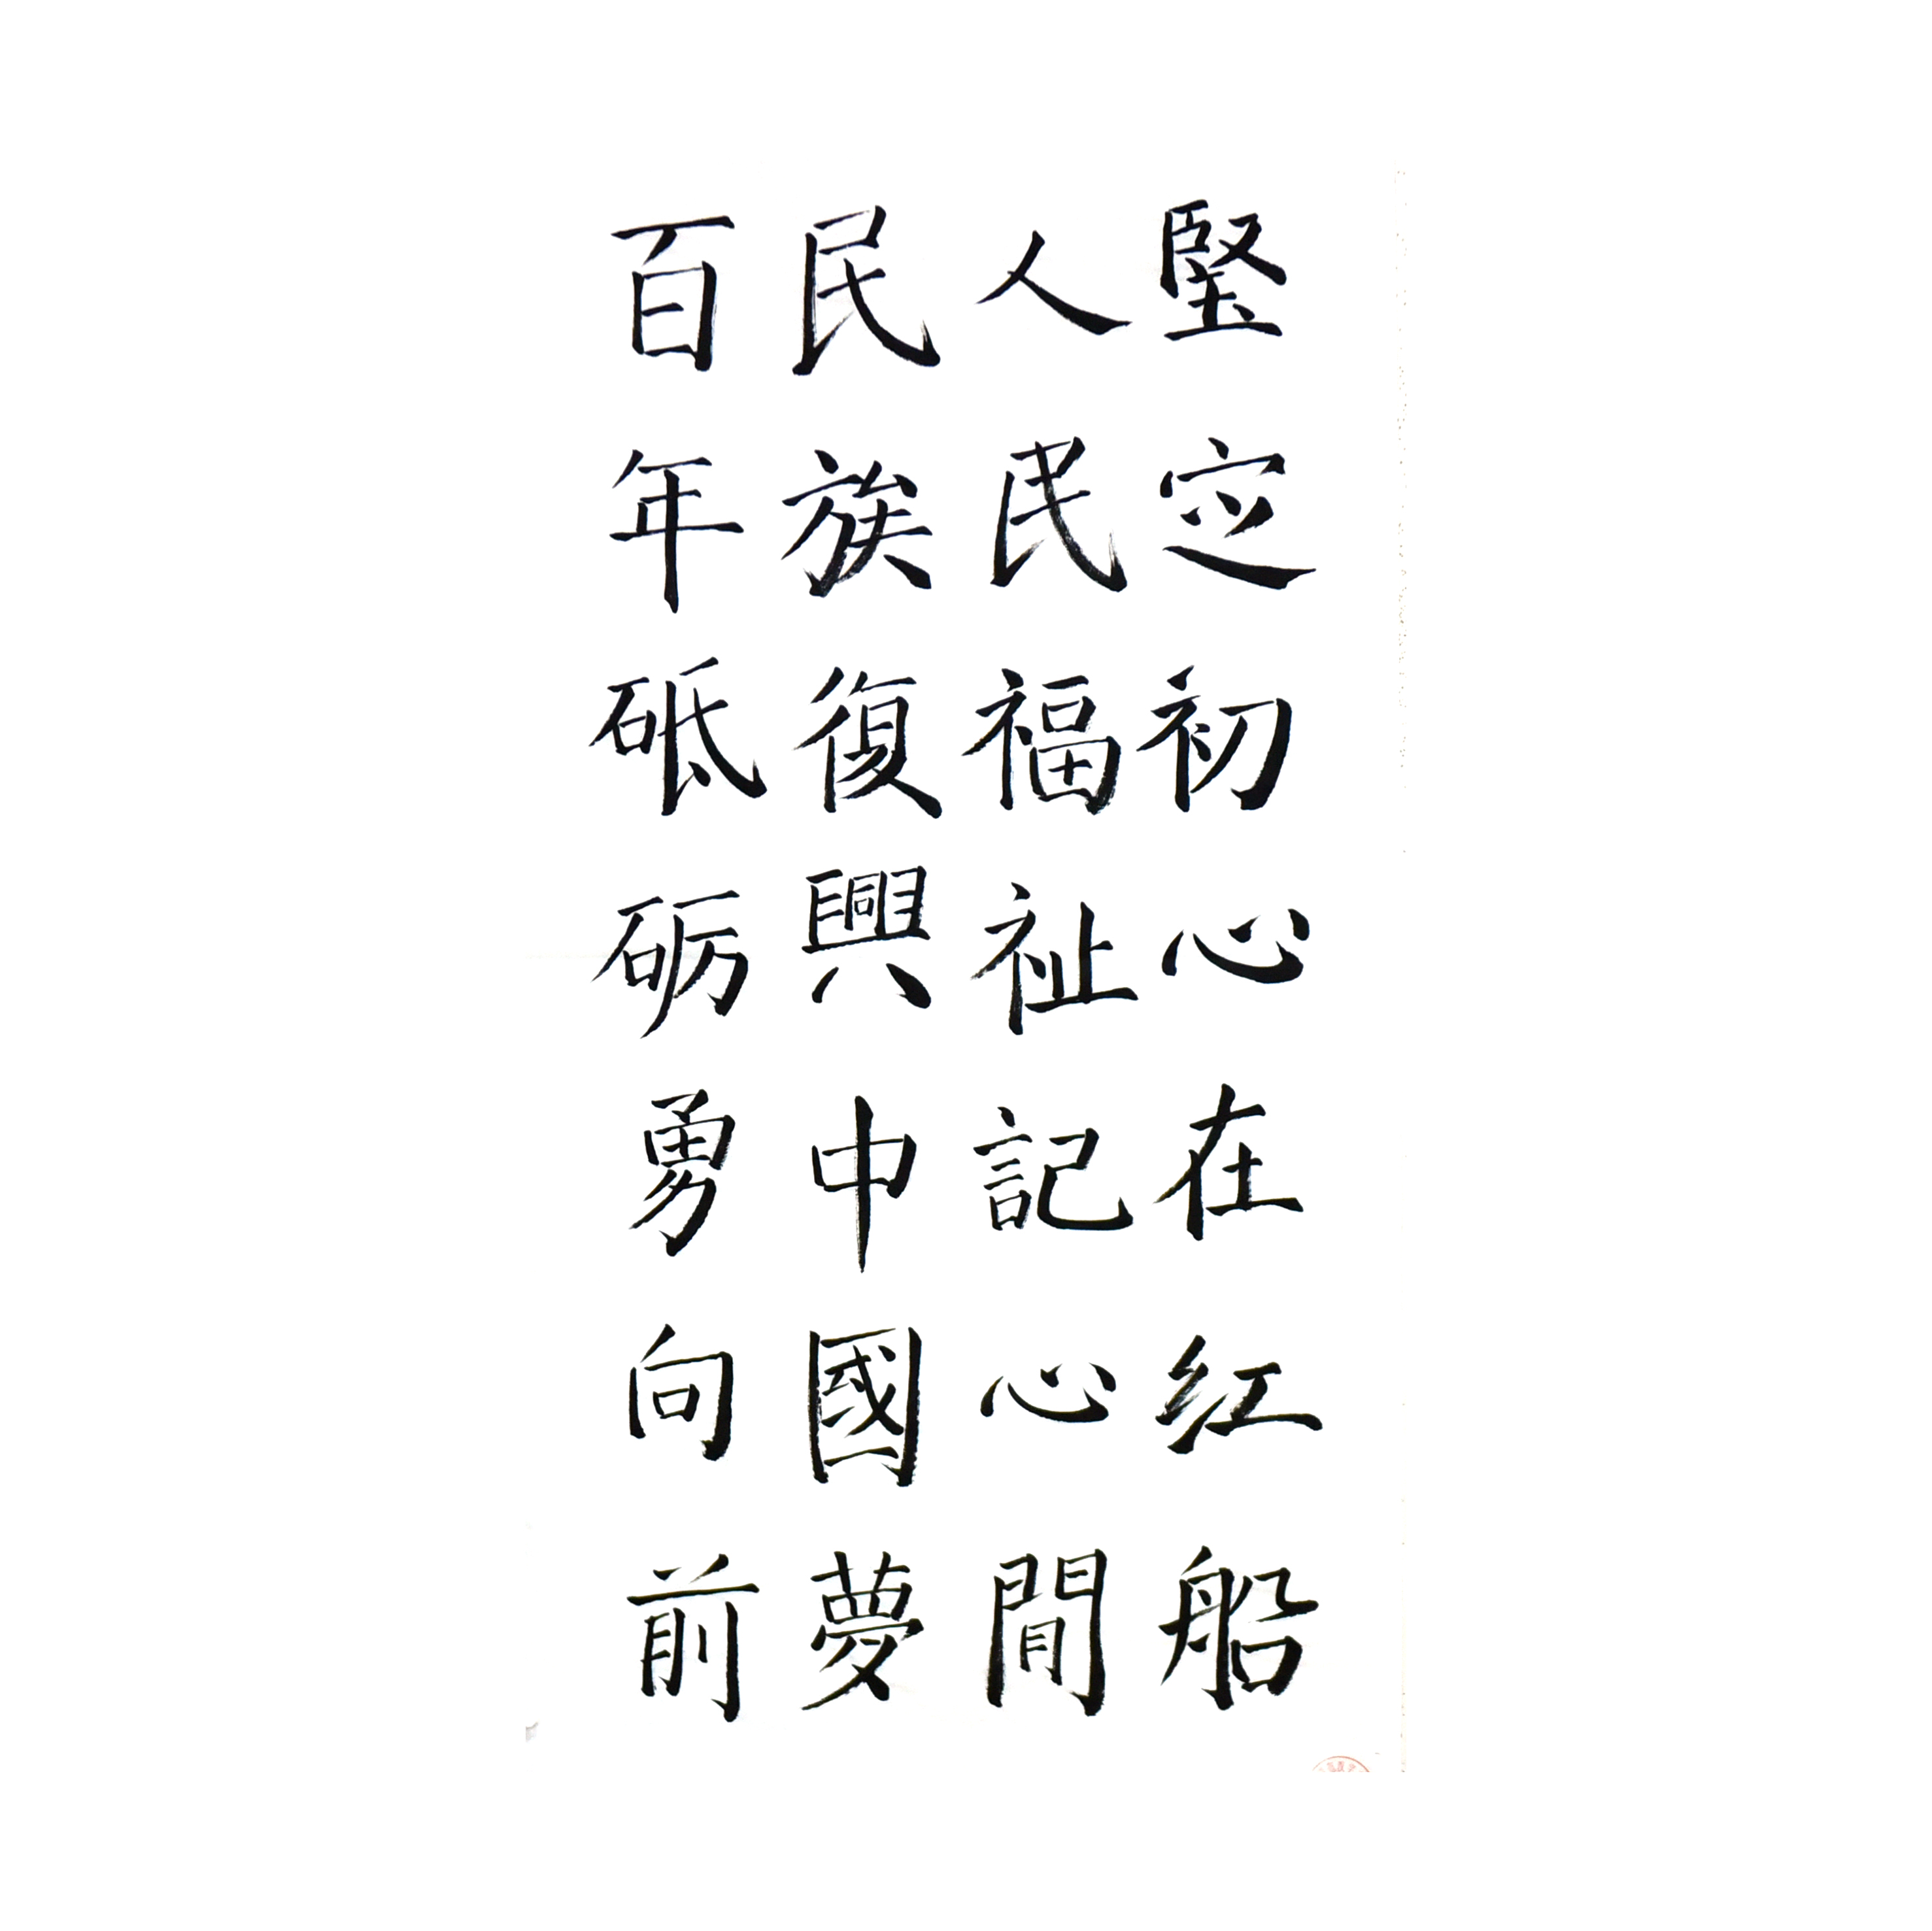 堅定初心在红船
人民福祉記心間
民族復興中國夢
百年砥砺勇向前